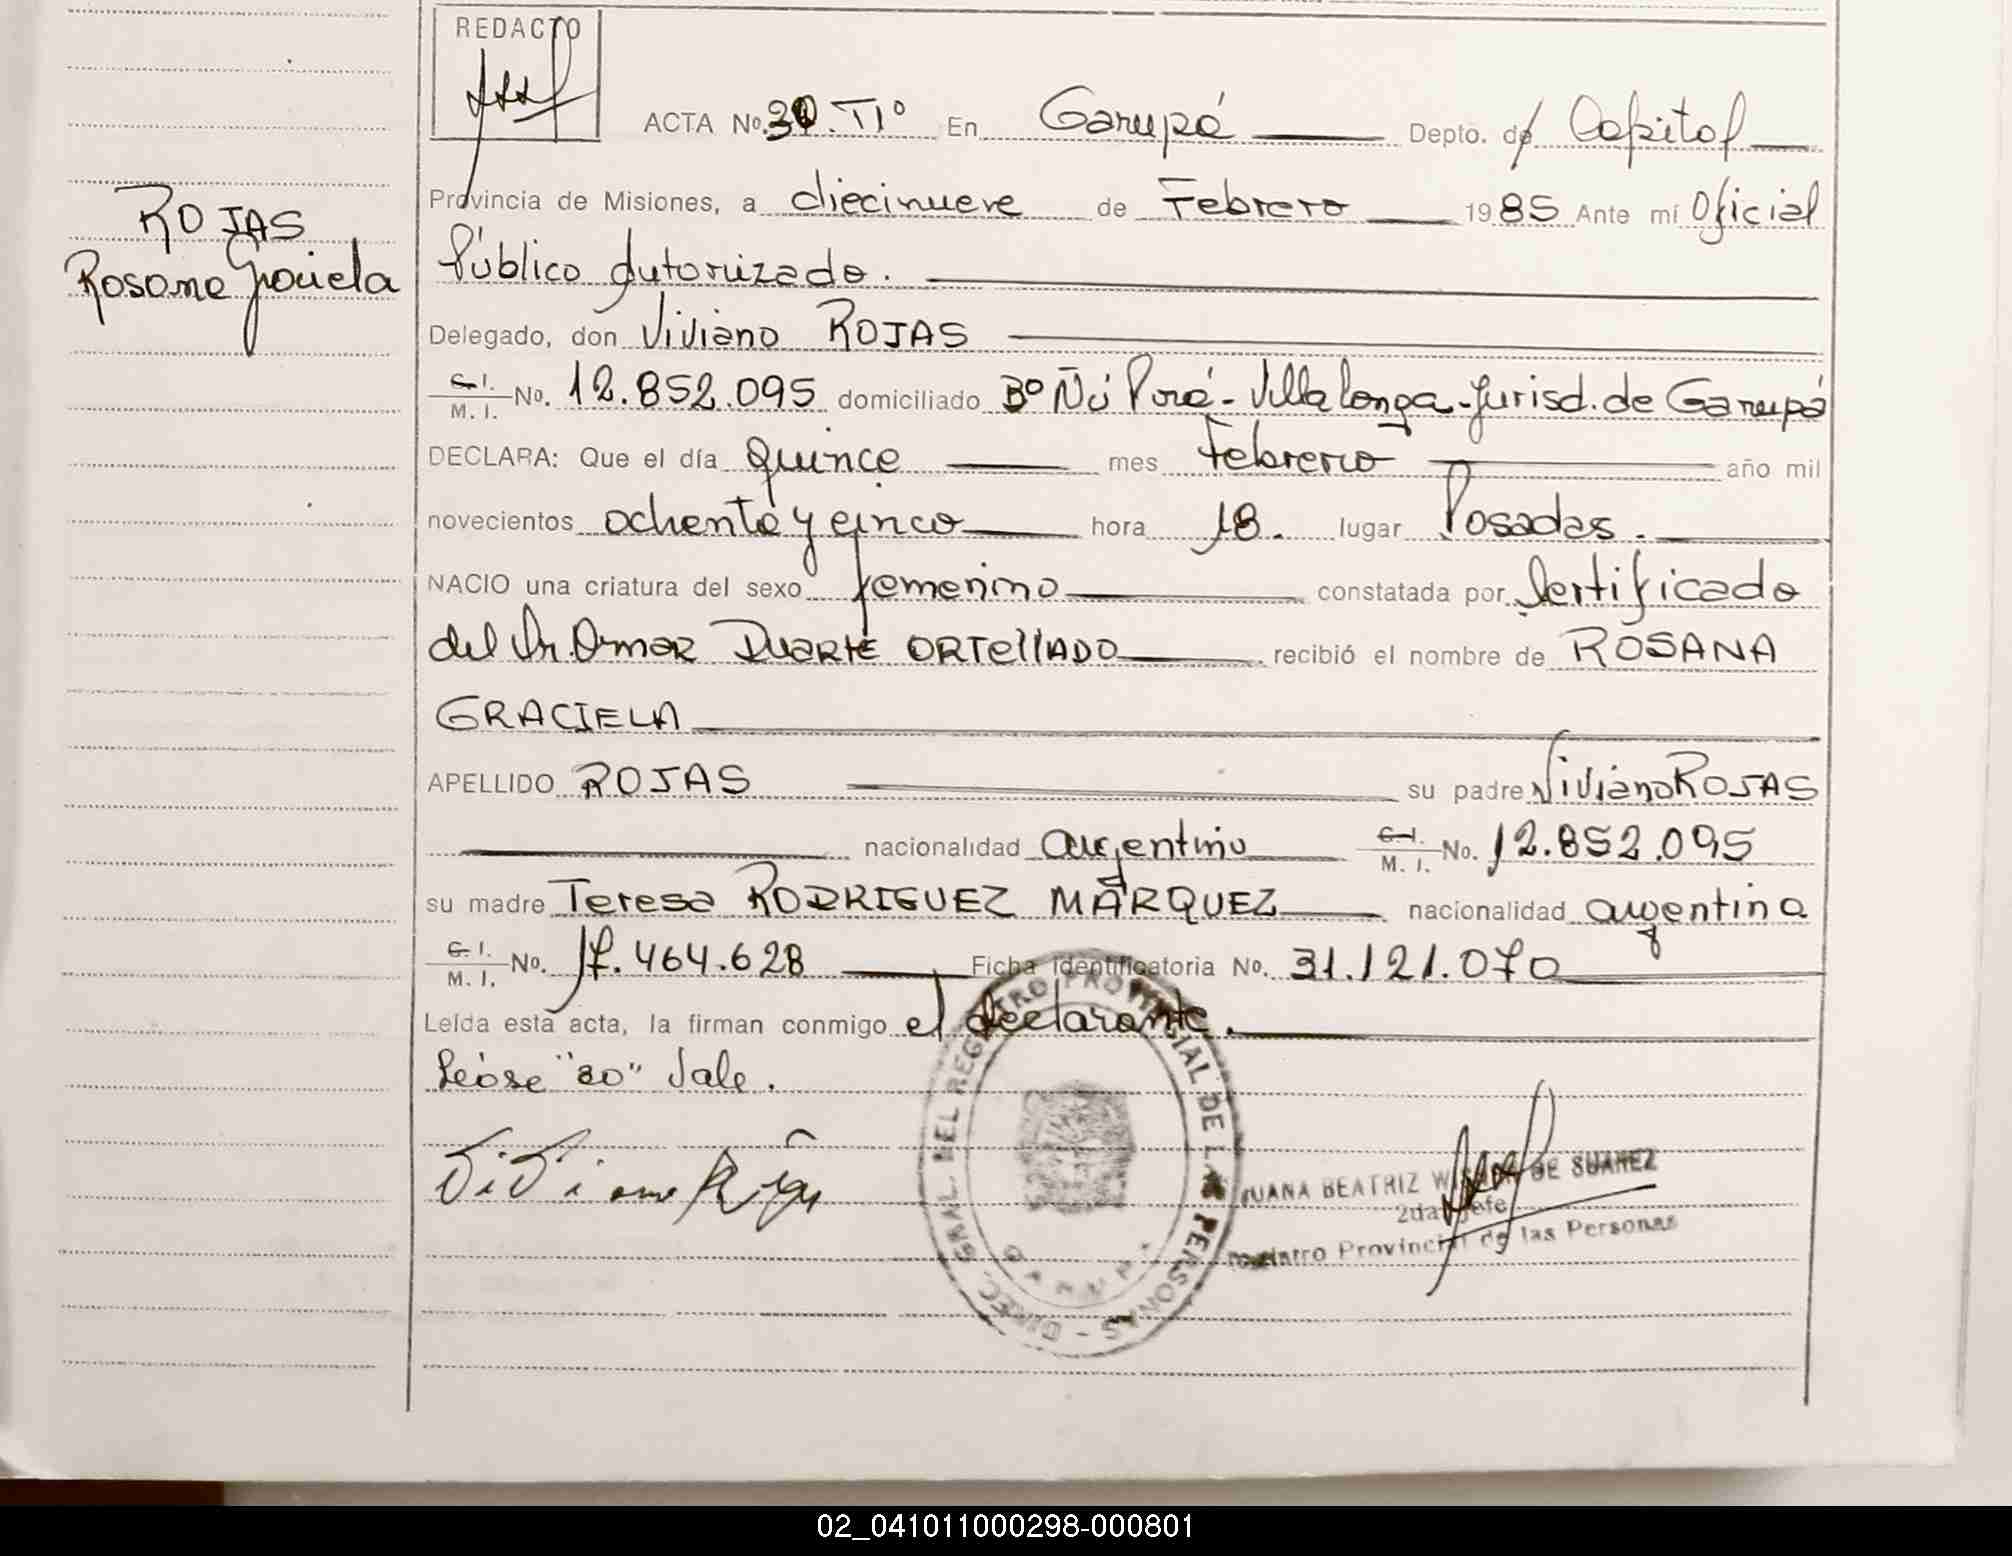 REDACTO
ACTA No. 30. Tº Iº En Garupá Depto. de Capital
ROJAS
Rosana Graciela
Provincia de Misiones, a diecinueve de Febrero 1985 Ante mí Oficial
Público Autorizado.
Delegado, don Viviano ROJAS
C. I. M. I. No. 12.852.095 domiciliado Bº Ñú Porá - Villalonga - Jurisd. de Garupá
DECLARA: Que el día quince mes Febrero año mil
novecientos ochenta y cinco hora 18. lugar Posadas.
NACIO una criatura del sexo femenino constatada por Certificado
del Dr. Omar DUARTE ORTELLADO recibió el nombre de ROSANA
GRACIELA
APELLIDO ROJAS su padre Viviano ROJAS
nacionalidad argentino C. I. M. I. No. 12.852.095
su madre Teresa RODRIGUEZ MARQUEZ nacionalidad argentina
C. I. M. I. No. 17.464.628 Ficha Identificatoria No. 31.121.070
Leída esta acta, la firman conmigo el declarante.
Léase "30" Vale.
Viviano Rojas
DIREC. GRAL. DEL REGISTRO PROVINCIAL DE LAS PERSONAS -
JUANA BEATRIZ DE SUAREZ
2da Jefe
Registro Provincial de las Personas
02_041011000298-000801